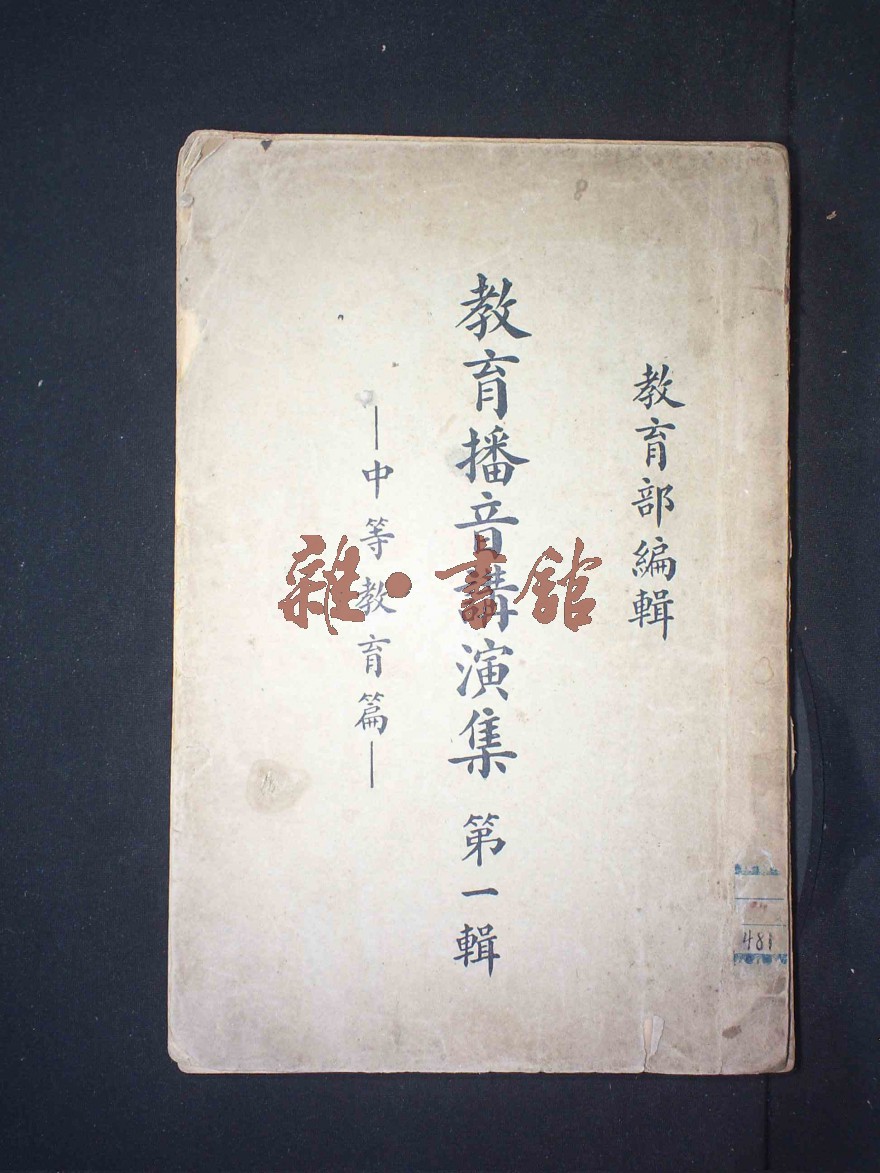 教育部編輯
教育播音講演集 第一輯
—中等教育篇—
雜·書館
481